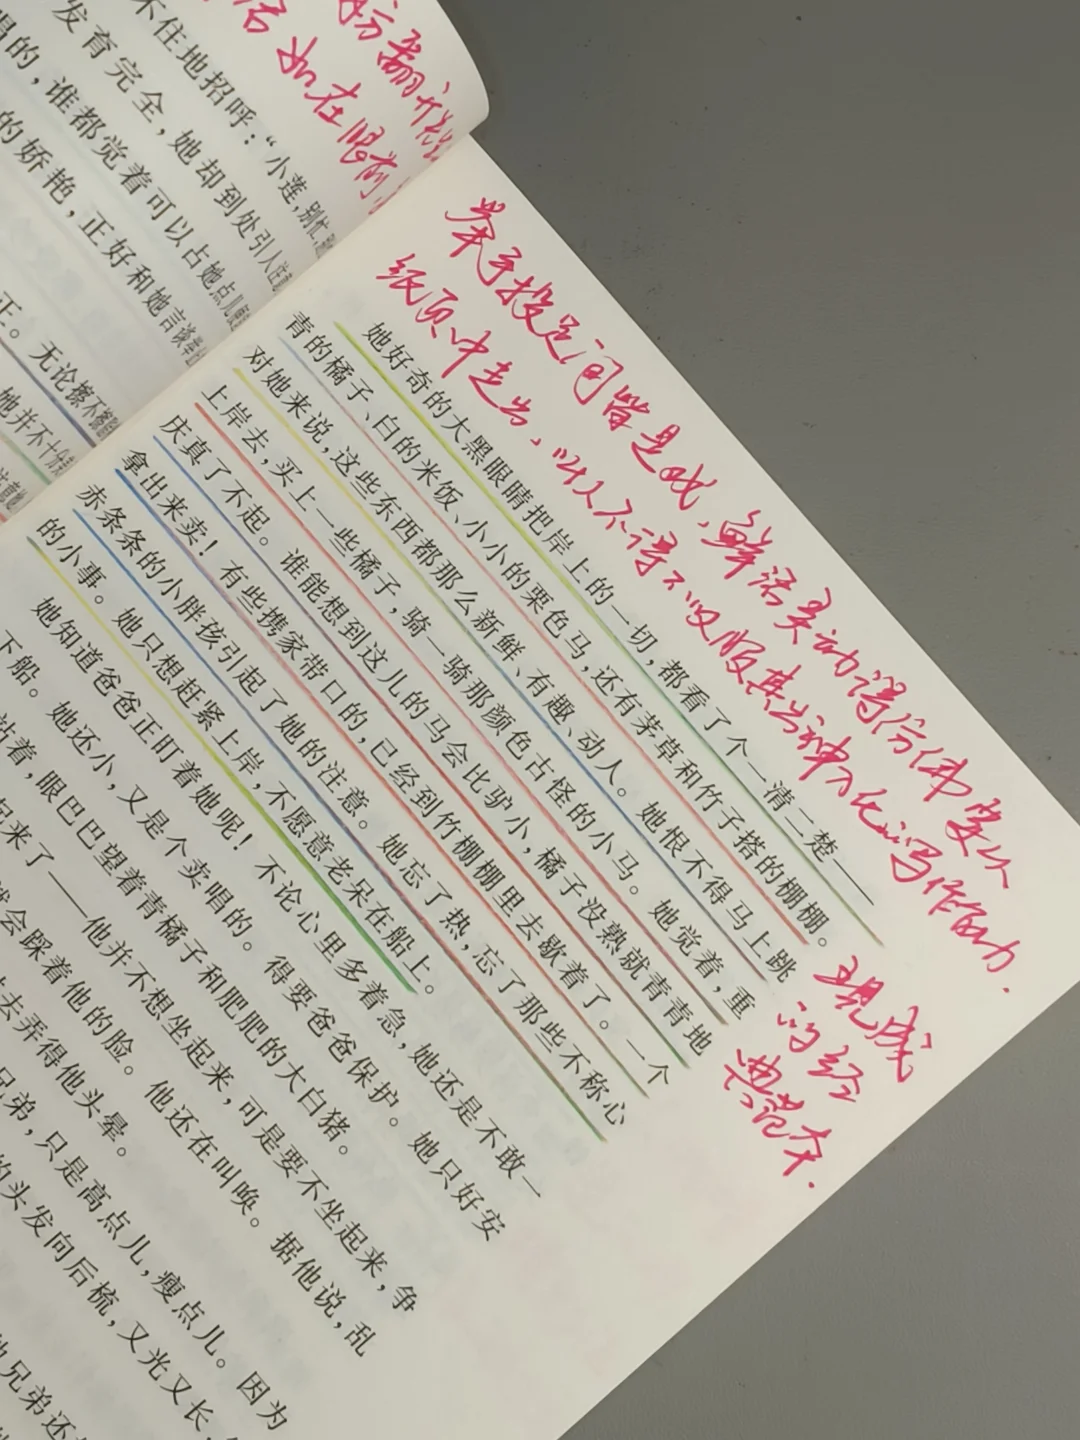 不住地招呼：“小莲，别忙，
发育完全，她却到处引人注
唱的，谁都觉着可以占她点儿便
的娇艳，正好和她言谈举
正。无论擦不擦
她并不十分
如在眼前
举手投足间皆是戏，鲜活灵动得仿佛要从
纸页中走出，叫人不得不叹服其出神入化的写作能力．
现成
的经
典范本．
她好奇的大黑眼睛把岸上的一切，都看了个一清二楚——
青的橘子、白的米饭、小小的栗色马，还有茅草和竹子搭的棚棚。
对她来说，这些东西都那么新鲜、有趣、动人。她恨不得马上跳
上岸去，买上一些橘子，骑一骑那颜色古怪的小马。她觉着，重
庆真了不起。谁能想到这儿的马会比驴小，橘子没熟就青青地
拿出来卖！有些携家带口的，已经到竹棚棚里去歇着了。一个
赤条条的小胖孩引起了她的注意。她忘了热，忘了那些不称心
的小事。她只想赶紧上岸，不愿意老呆在船上。
她知道爸爸正盯着她呢！不论心里多着急，她还是不敢一
下船。她还小，又是个卖唱的。得要爸爸保护。她只好安
站着，眼巴巴望着青橘子和肥肥的大白猪。
起来了——他并不想坐起来，可是要不坐起来，争
会踩着他的脸。他还在叫唤。据他说，乱
去弄得他头晕。
兄弟，只是高点儿，瘦点儿。因为
的头发向后梳，又光又长，
兄弟还